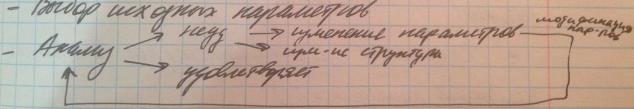 - Выбор исходных параметров
неуд → изменение параметров
модификация пар-ров
- Анализ → изм-ие структуры
удовлетворяет